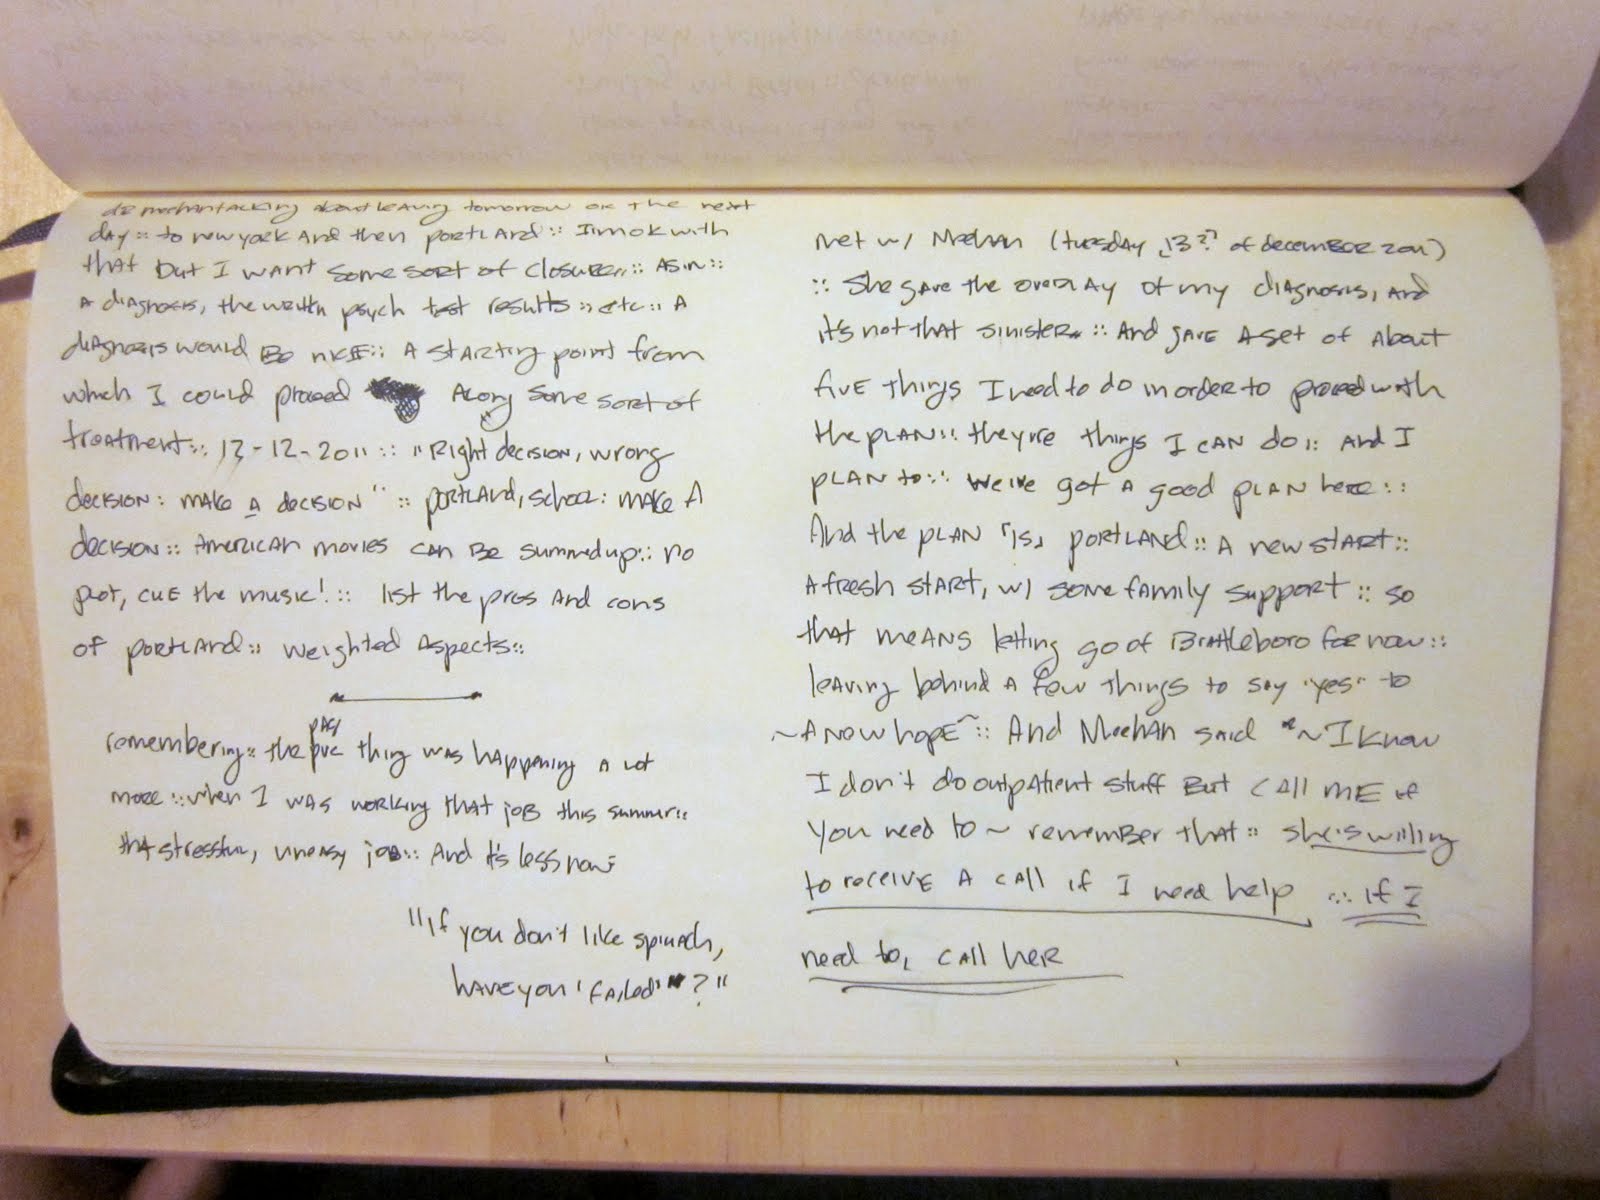 talking about leaving tomorrow or the next
day :: to new york and then portland :: I'm ok with
that but I want some sort of closure :: as in ::
a diagnosis, the written psych test results :: etc :: A
diagnosis would be nice :: a starting point from
which I could proceed along some sort of
treatment :: 13-12-2011 :: "Right decision, wrong
decision: make a decision" :: portland, school: make a
decision :: American movies can be summed up :: no
plot, cue the music! :: list the pros and cons
of portland :: weighted aspects ::
remembering :: the thing was happening a lot
more :: when I was working that job this summer ::
that stressful, uneasy job :: And it's less now ::
"If you don't like spinach,
have you 'failed'?"
met w/ Meehan (tuesday, 13?? of december 2011)
:: She gave the overlay of my diagnosis, and
it's not that sinister :: And gave a set of about
five things I need to do in order to proceed with
the plan :: they're things I can do :: and I
plan to :: we've got a good plan here ::
And the plan 「is」 portland :: A new start ::
A fresh start, w/ some family support :: so
that means letting go of Brattleboro for now ::
leaving behind a few things to say "yes" to
~A new hope~ :: And Meehan said ~I know
I don't do outpatient stuff but call me if
you need to~ remember that :: she's willing
to receive a call if I need help :: if I
need to, call her